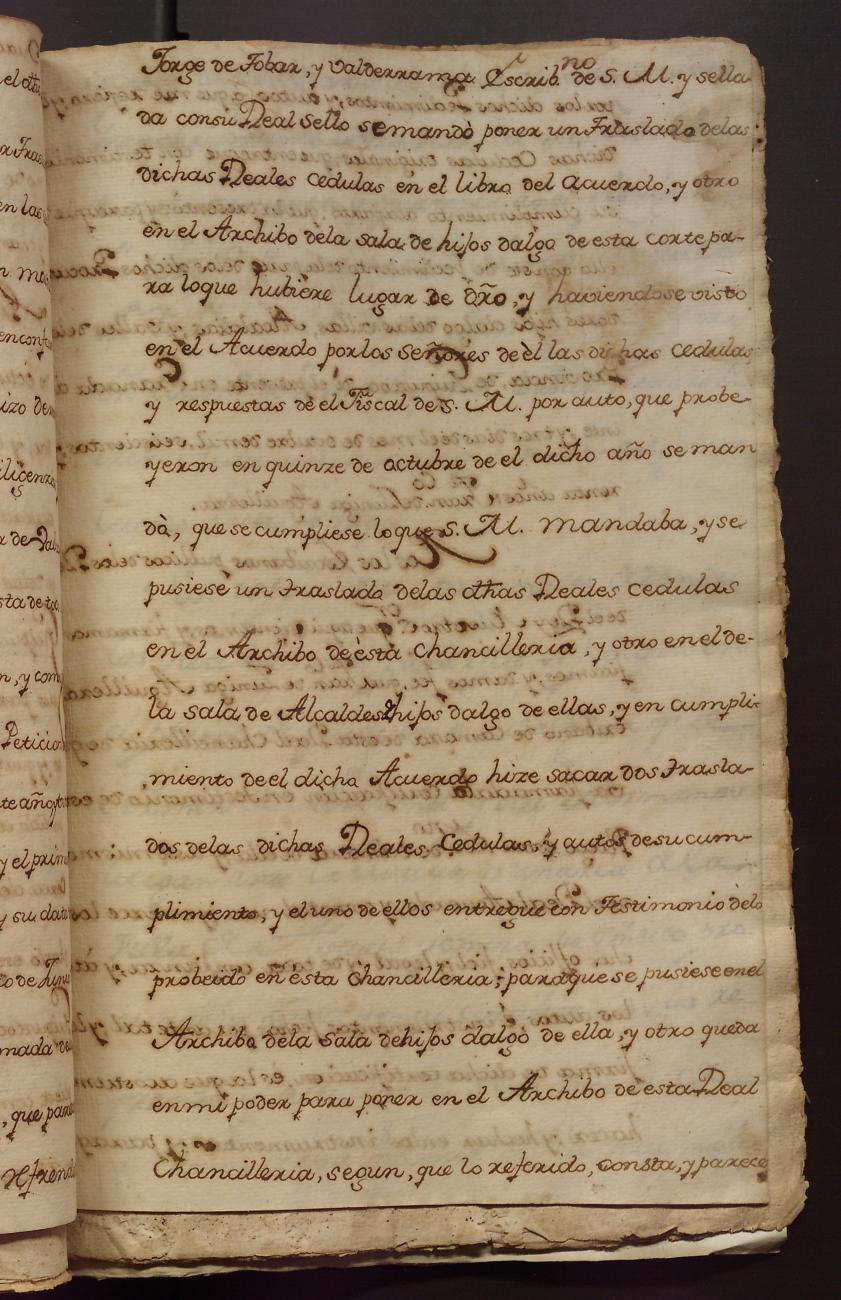 Jorge de Tobar, y Valderrama Escrib.no de S. M. y sella
da con su Real Sello se mandò poner un Traslado delas
dichas Reales cedulas en el libro del acuerdo, y otro
en el Archibo dela sala de hijos dalgo de esta corte pa-
ra loque hubiere lugar de dr̃o, y haviendose visto
en el Acuerdo por los Señores de èl las dichas cedulas,
y respuestas de el Fiscal de S. M. por auto, que probe-
yeron en quinze de octubre de el dicho año se man
dò, que se cumpliese lo que S. M. mandaba, y se
pusiese un traslado delas dhas Reales cedulas
en el Archibo de èsta chancilleria, y otro en el de-
la sala de Alcaldes hijos dalgo de ellas, y en cumpli-
miento de el dicho Acuerdo hize sacar dos trasla-
dos delas dichas Reales Cedulas, y autos de su cum-
plimiento, y el uno de ellos entreguè con Testimonio delo
probeido en èsta chancilleria; para que se pusiese en el
Archibo dela sala dehijos dalgo de ella, y otro queda
en mi poder para poner en el Archibo de esta Real
Chancilleria, segun, que lo referido, consta, y parece